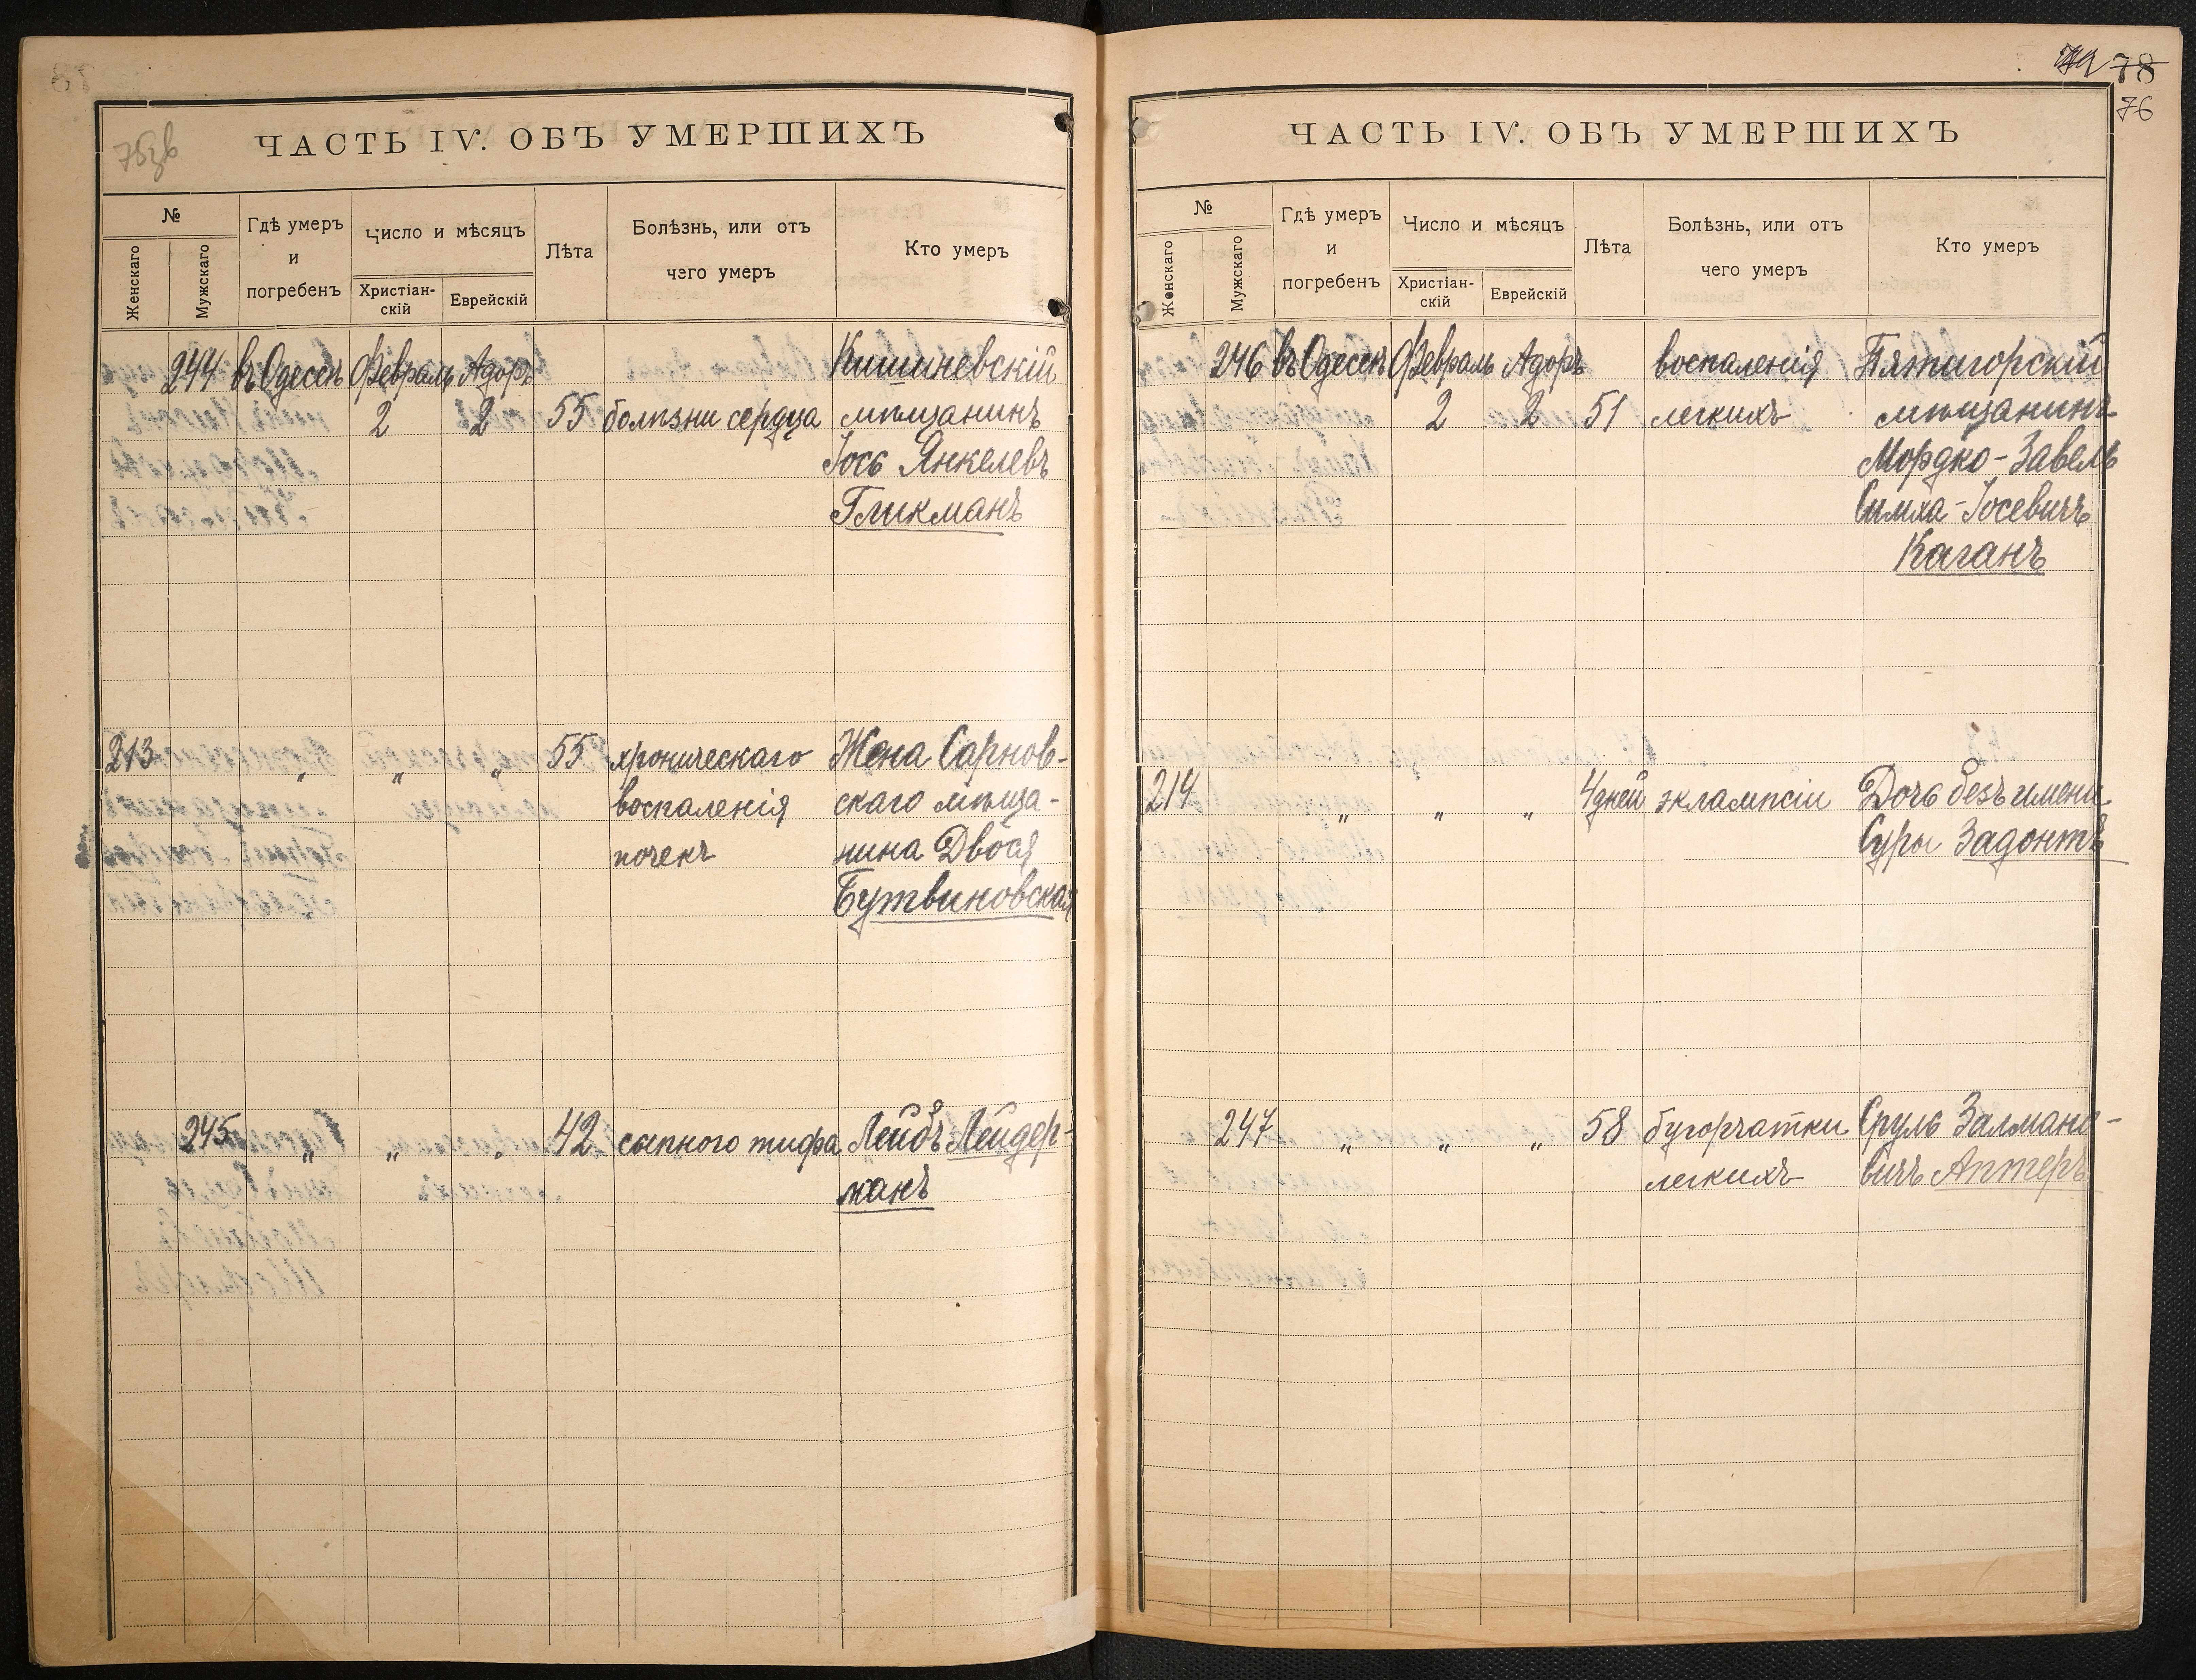 75зв
ЧАСТЬ IV. ОБЪ УМЕРШИХЪ
№
Женскаго
Мужскаго
Гдѣ умеръ
и
погребенъ
Число и мѣсяцъ
Христіан-
скій
Еврейскій
Лѣта
Болѣзнь, или отъ
чего умеръ
Кто умеръ
244 въ Одессѣ Февраль Адоръ Кишиневскій
2 2 55 болѣзни сердца мѣщанинъ
Іось Янкелевъ
Гликманъ
213 " " " 55 хроническаго Жена Сарнов-
воспаленія скаго мѣща-
почекъ нина Двося
Бутвиновская
245 " " " 42 сыпного тифа Лейбъ Лейдер-
манъ
78
76
ЧАСТЬ IV. ОБЪ УМЕРШИХЪ
№
Женскаго
Мужскаго
Гдѣ умеръ
и
погребенъ
Число и мѣсяцъ
Христіан-
скій
Еврейскій
Лѣта
Болѣзнь, или отъ
чего умеръ
Кто умеръ
246 въ Одессѣ Февраль Адоръ воспаленія Пятигорскій
2 2 51 легкихъ мѣщанинъ
Мордко-Завель
Симха-Іосевичъ
Каганъ
214 " " " 4 дней эклампсіи Дочь безъ имени
Суры Задонтъ
247 " " " 58 бугорчатки Сруль Залмано-
легкихъ вичъ Аптеръ